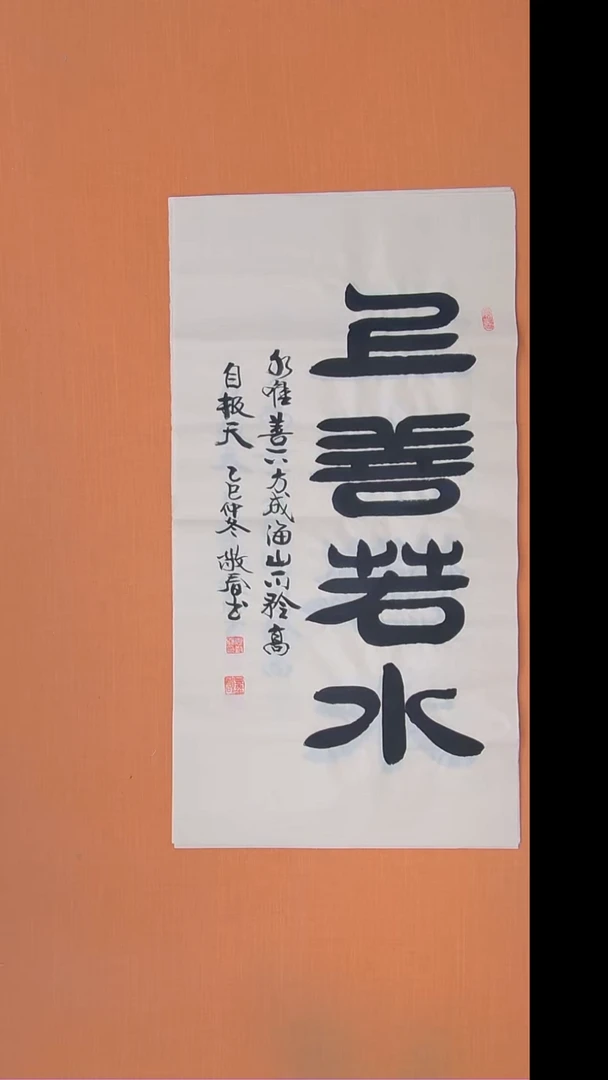 上善若水
水唯善下方成海山不矜高
自极天 乙巳仲冬 敬春书